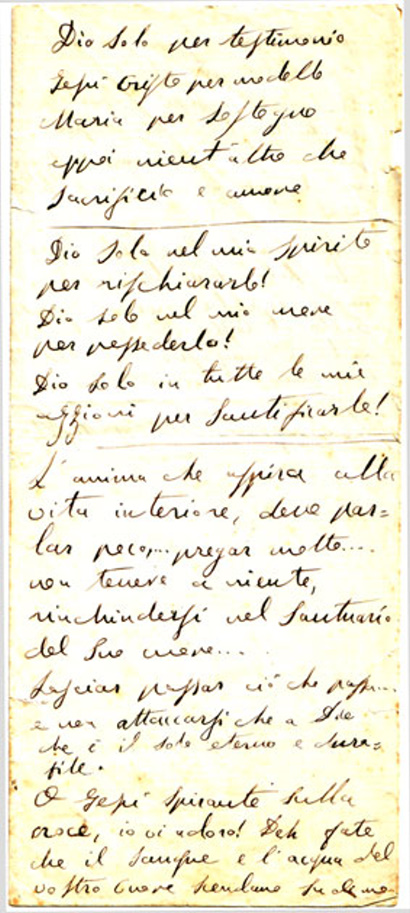 Dio solo per testimonio
Gesù Cristo per modello
Maria per sostegno
eppoi nient'altro che
sacrificio e amore
Dio solo nel mio spirito
per rischiararlo!
Dio solo nel mio cuore
per possederlo!
Dio solo in tutte le mie
azzioni per santificarle!
L'anima che aspira alla
vita interiore, deve par=
lar poco,... pregar molto....
non tenere a niente,
rinchiudersi nel Santuario
del suo cuore....
Lasciar passar ciò che passa...
e non attaccarsi che a Dio
che è il solo eterno e dura=
bile.
O Gesù spirante sulla
croce, io vi adoro! Deh fate
che il sangue e l'acqua del
vostro Cuore scendano su di me